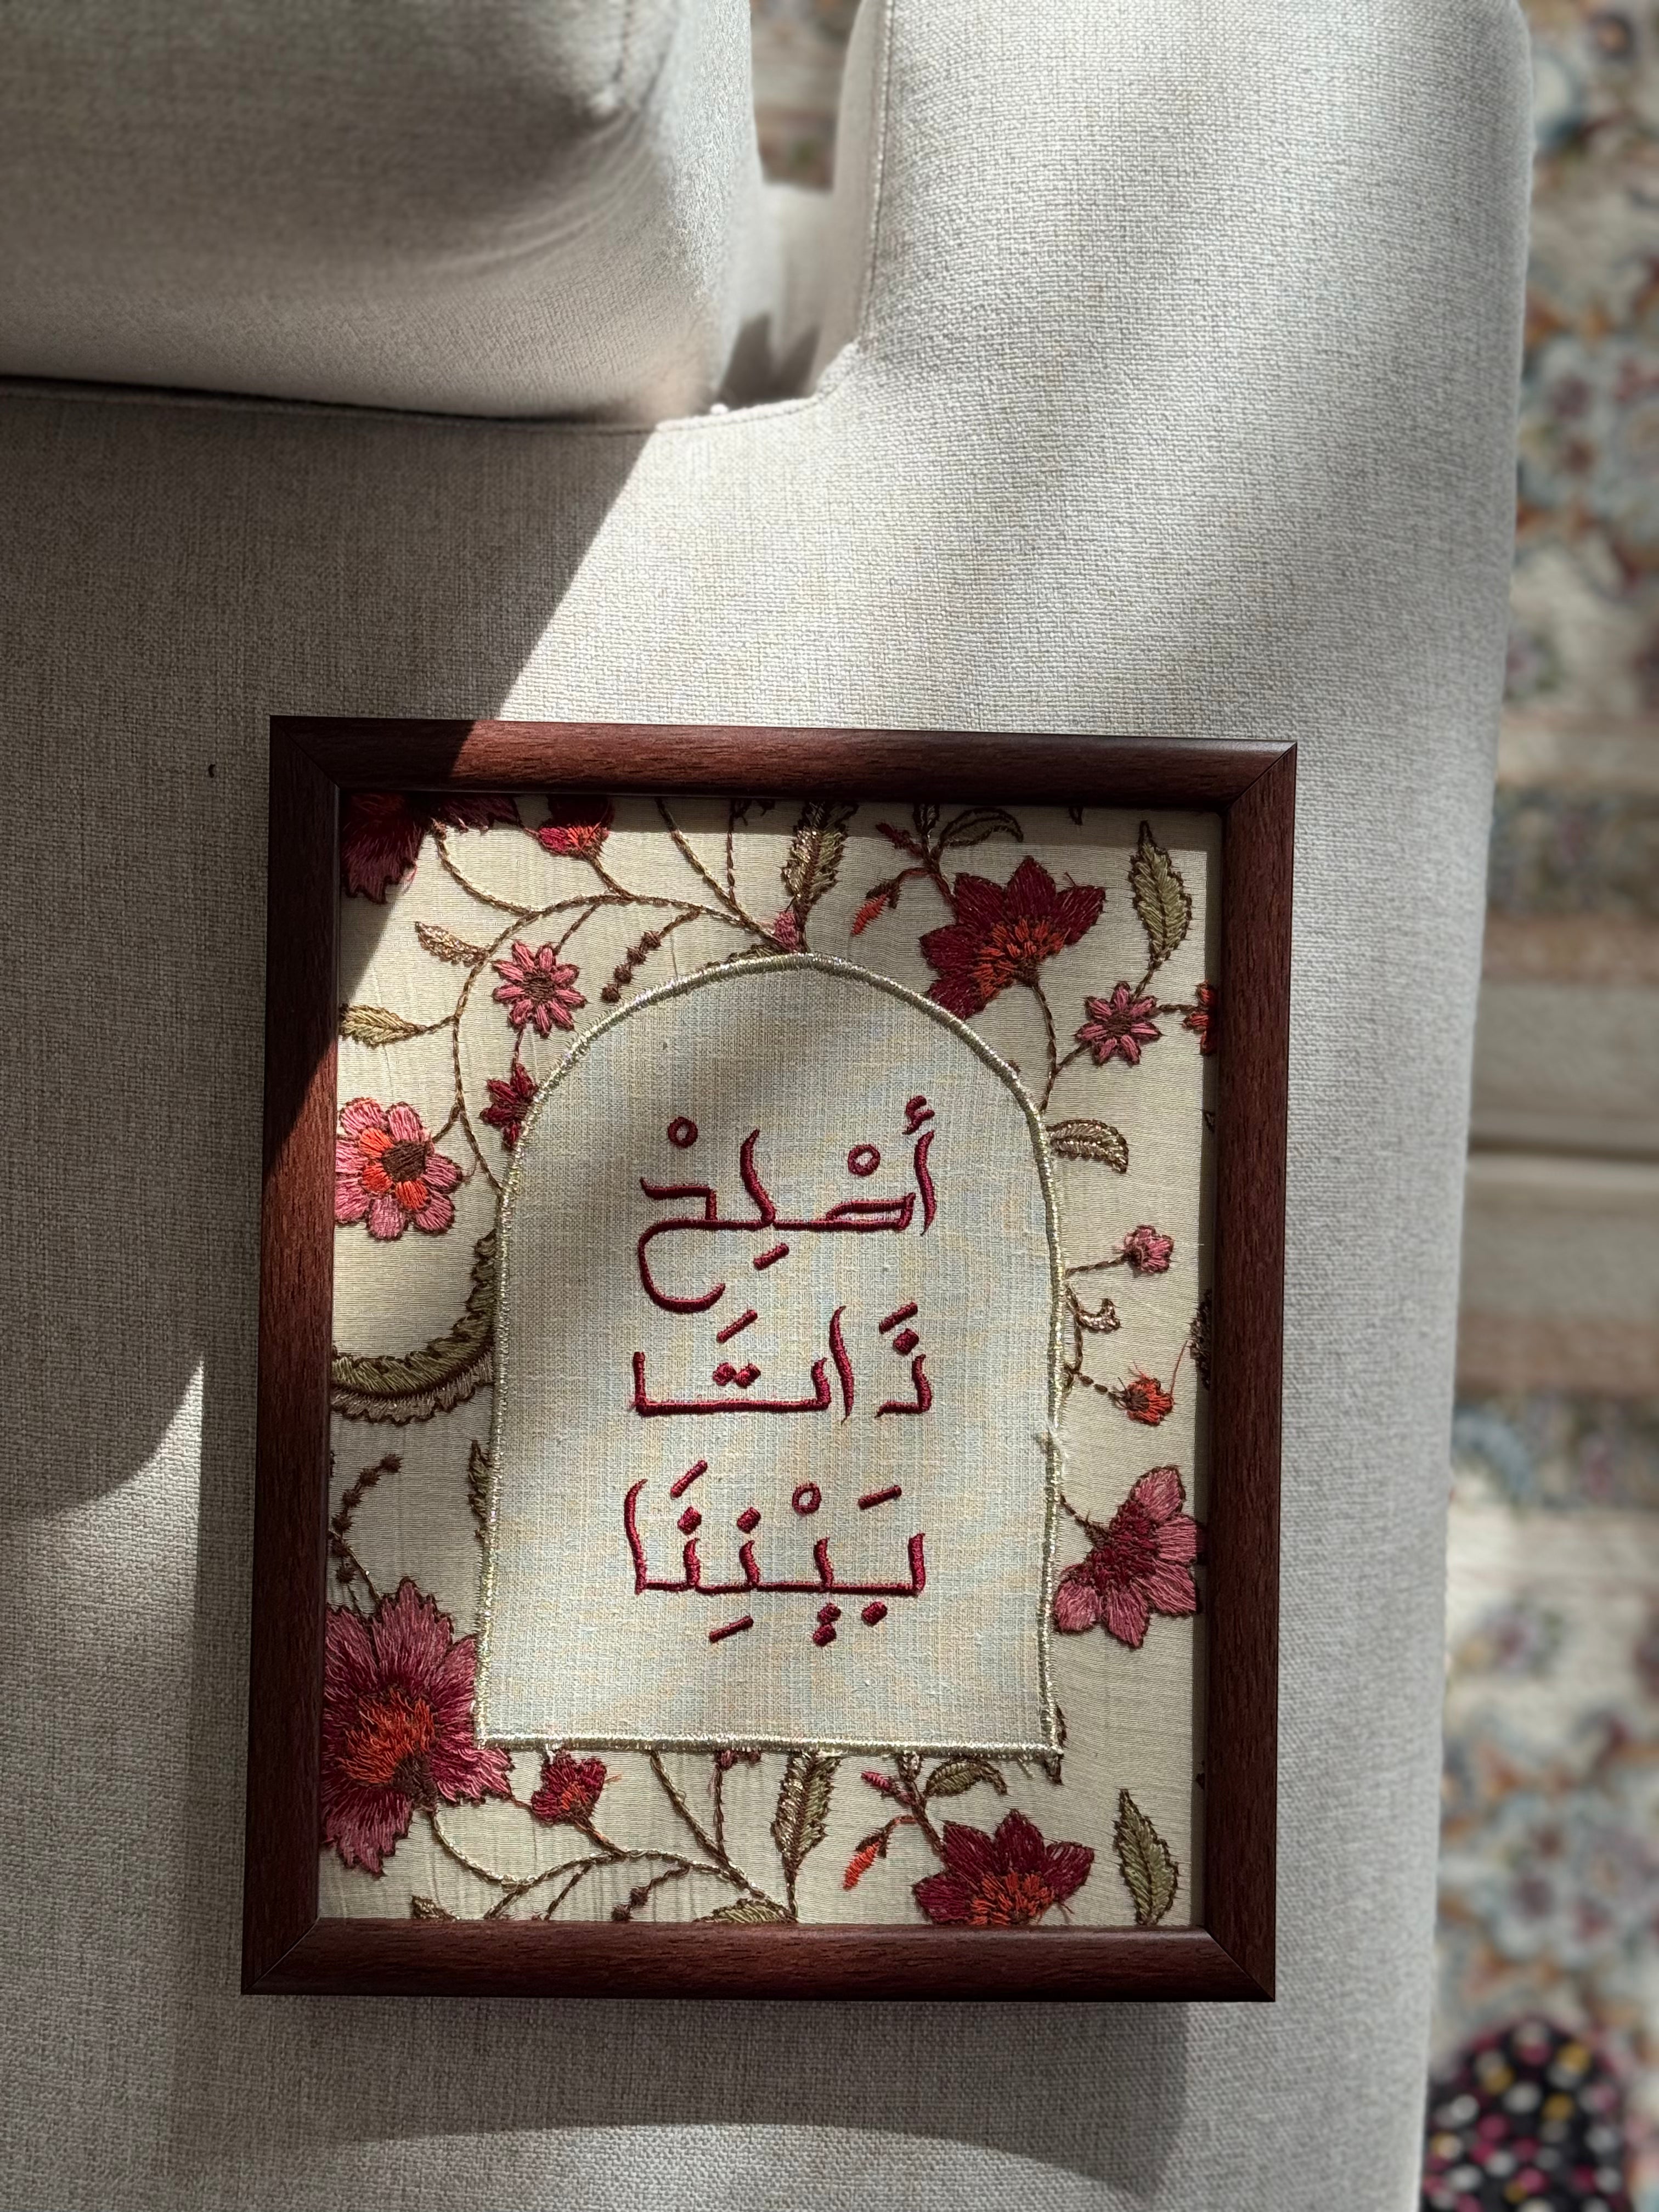 أَصْلِحْ
ذَاتَ
بَيْنِنَا